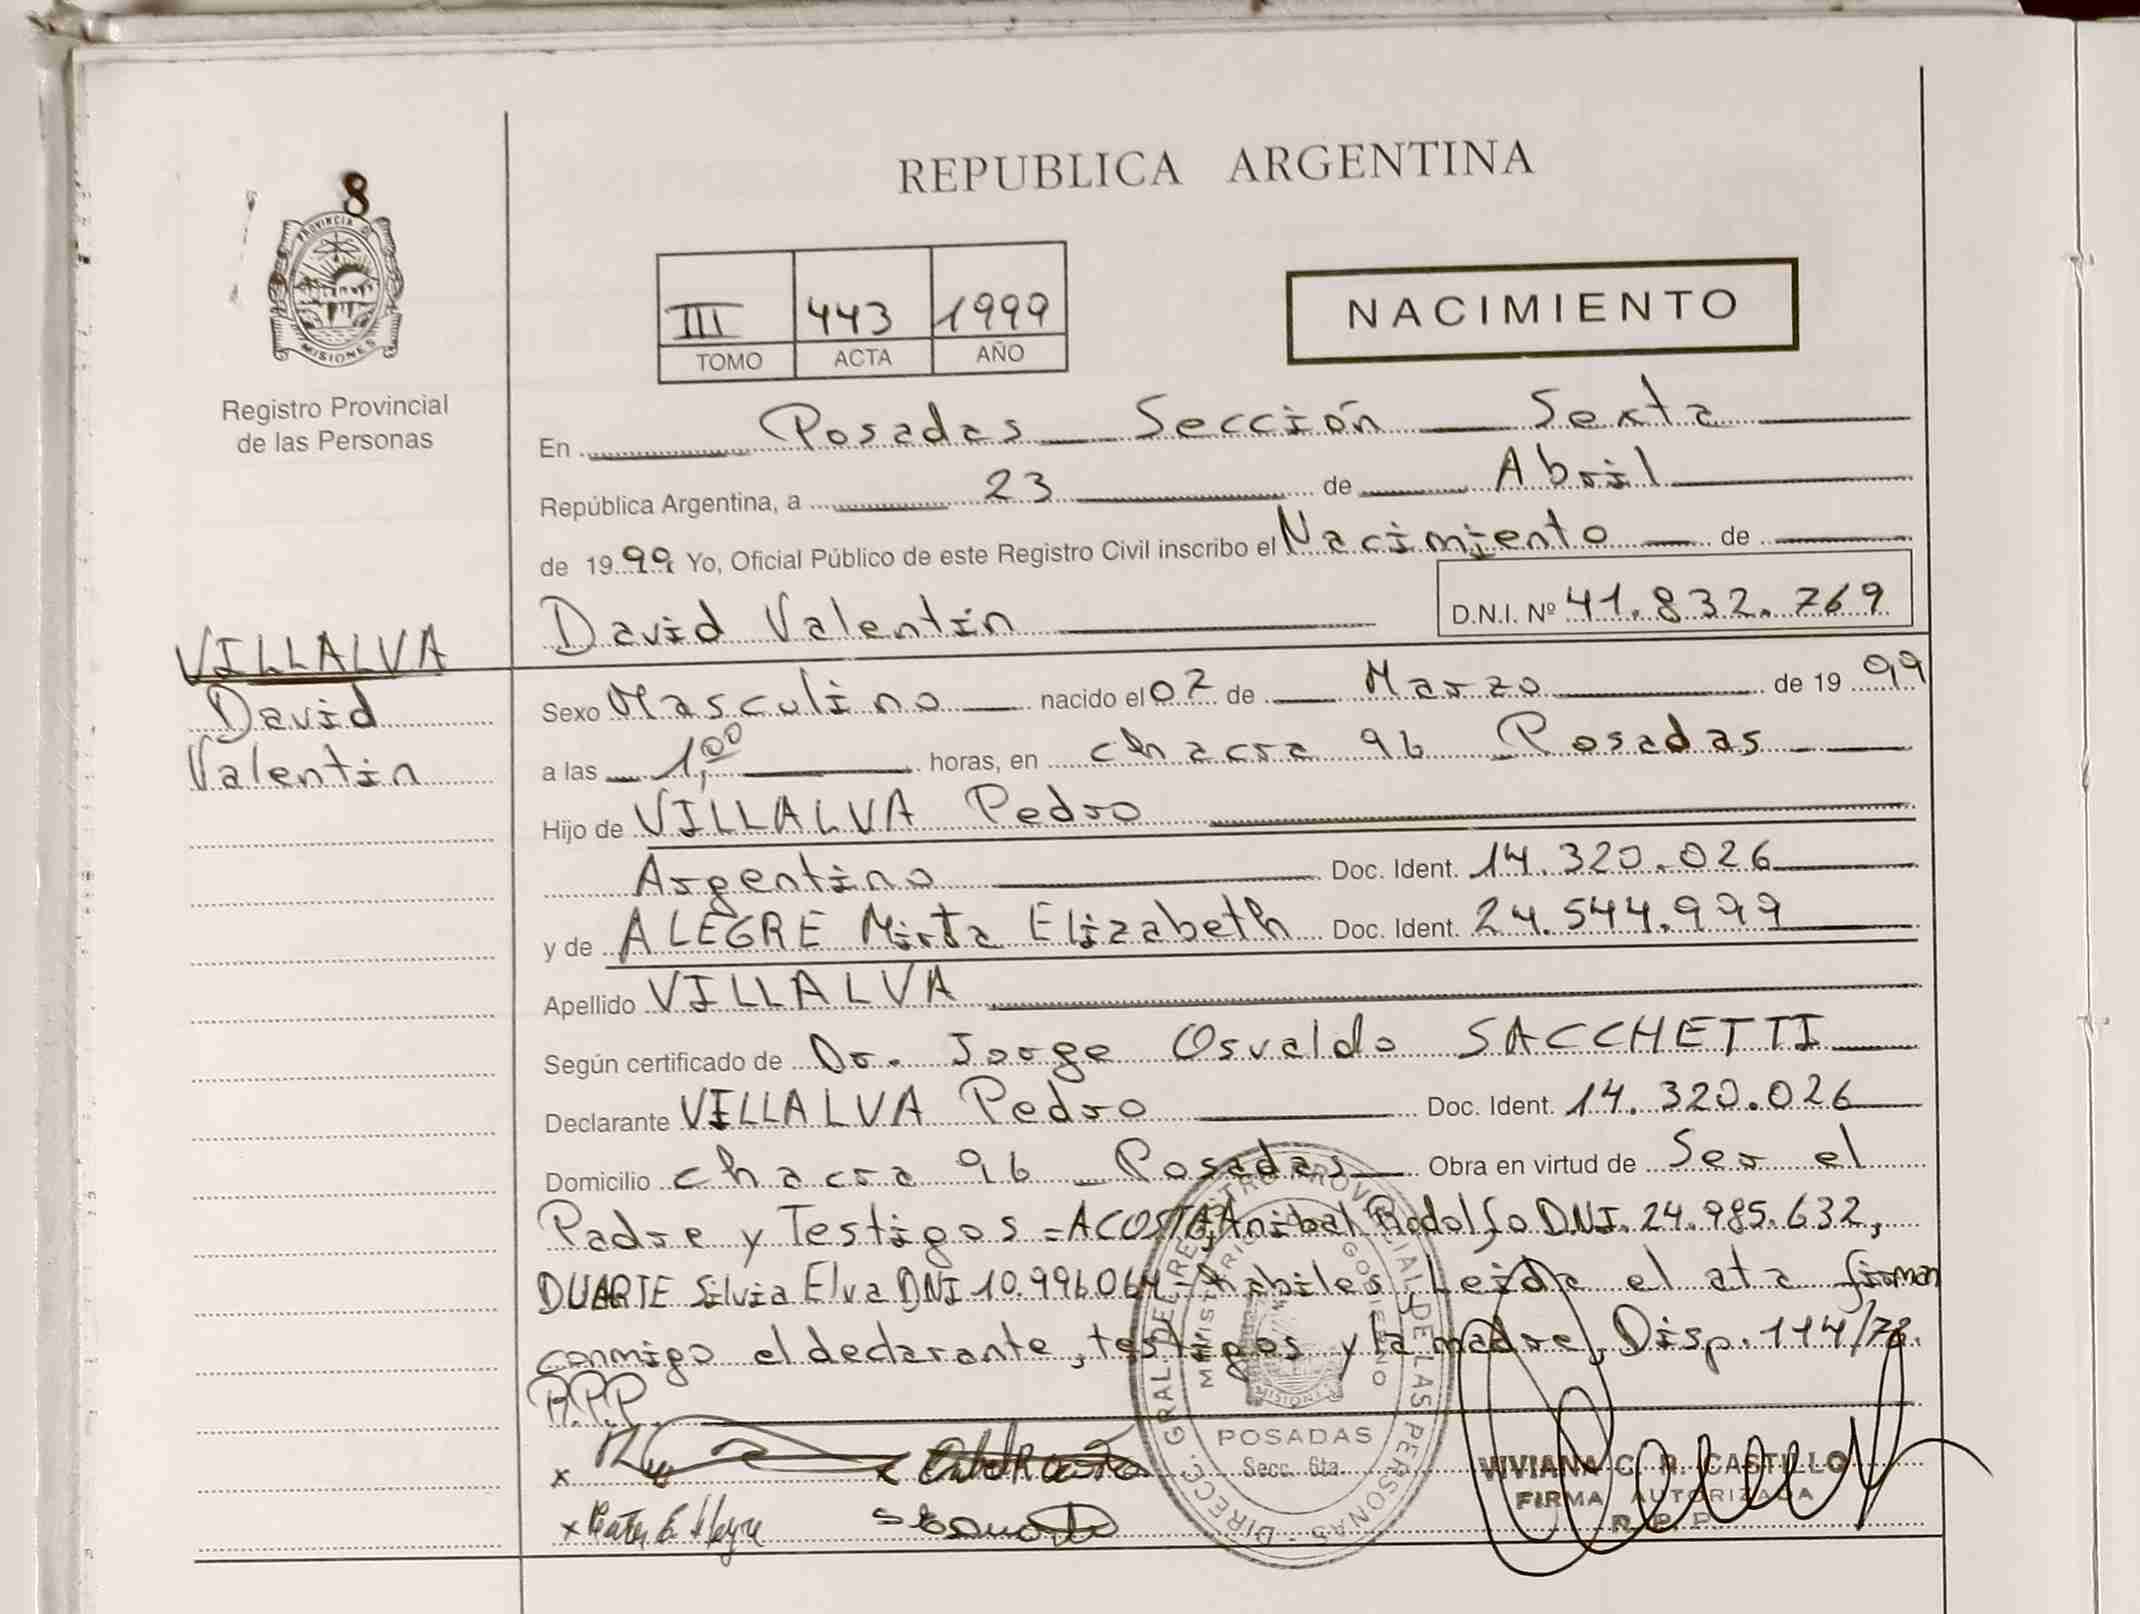 8
REPUBLICA ARGENTINA
PROVINCIA DE
MISIONES
Registro Provincial
de las Personas
III 443 1999
TOMO ACTA AÑO
NACIMIENTO
En Posadas Sección Sexta
República Argentina, a 23 de Abril
de 1999 Yo, Oficial Público de este Registro Civil inscribo el Nacimiento de
David Valentin D.N.I. Nº 41.832.769
VILLALVA
David
Valentin
Sexo Masculino nacido el 07 de Marzo de 1999
a las 1,00 horas, en chacra 96 Posadas
Hijo de VILLALVA Pedro
Argentino Doc. Ident. 14.320.026
y de ALEGRE Mirta Elizabeth Doc. Ident. 24.544.999
Apellido VILLALVA
Según certificado de Dr. Jorge Osvaldo SACCHETTI
Declarante VILLALVA Pedro Doc. Ident. 14.320.026
Domicilio chacra 96 Posadas Obra en virtud de Ser el
Padre y Testigos = ACOSTA, Anibal Rodolfo DNI. 24.985.632,
DUARTE Silvia Elva DNI 10.996.064 - habiles, Leida el ata firman
conmigo el declarante, testigos y la madre, Disp. 114/78.
R.P.P.
DIREC. GRAL DEL REGISTRO PROVINCIAL DE LAS PERSONAS
MINISTERIO GOBIERNO
MISIONES
POSADAS
Secc. 6ta.
VIVIANA C. R. CASTILLO
FIRMA AUTORIZADA
R. P. P.